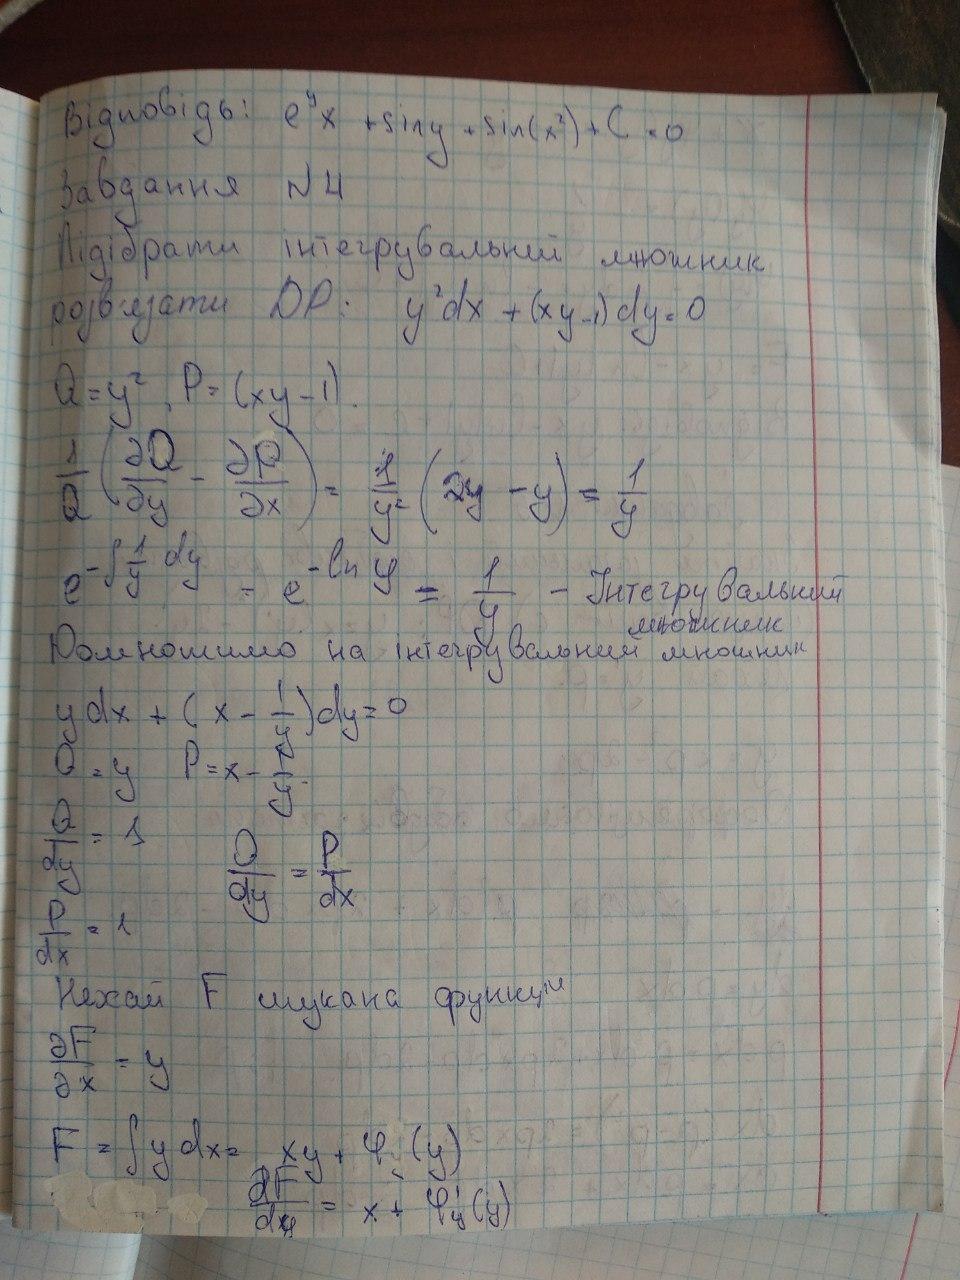 Відповідь: e^y x + sin y + sin(x²) + C = 0
Завдання №4
Підібрати інтегрувальний множник
розв'язати ДР: y²dx + (xy-1)dy = 0
Q = y², P = (xy-1).
1/Q (∂Q/∂y - ∂P/∂x) = 1/y² (2y - y) = 1/y
e^(-∫1/y dy) = e^(-ln y) = 1/y - Інтегрувальний
множник
Домножимо на інтегрувальний множник
ydx + (x - 1/y)dy = 0
Q = y P = x - 1/y.
Q/dy = 1
Q/dy = P/dx
P/dx = 1
Нехай F шукана функція
∂F/∂x = y
F = ∫y dx = xy + φ(y)
∂F/dy = x + φ'y(y)